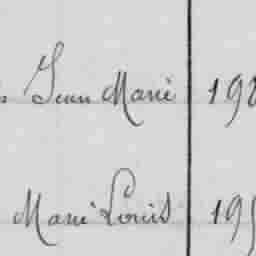 Jean Marie 192
Marie Louis 195